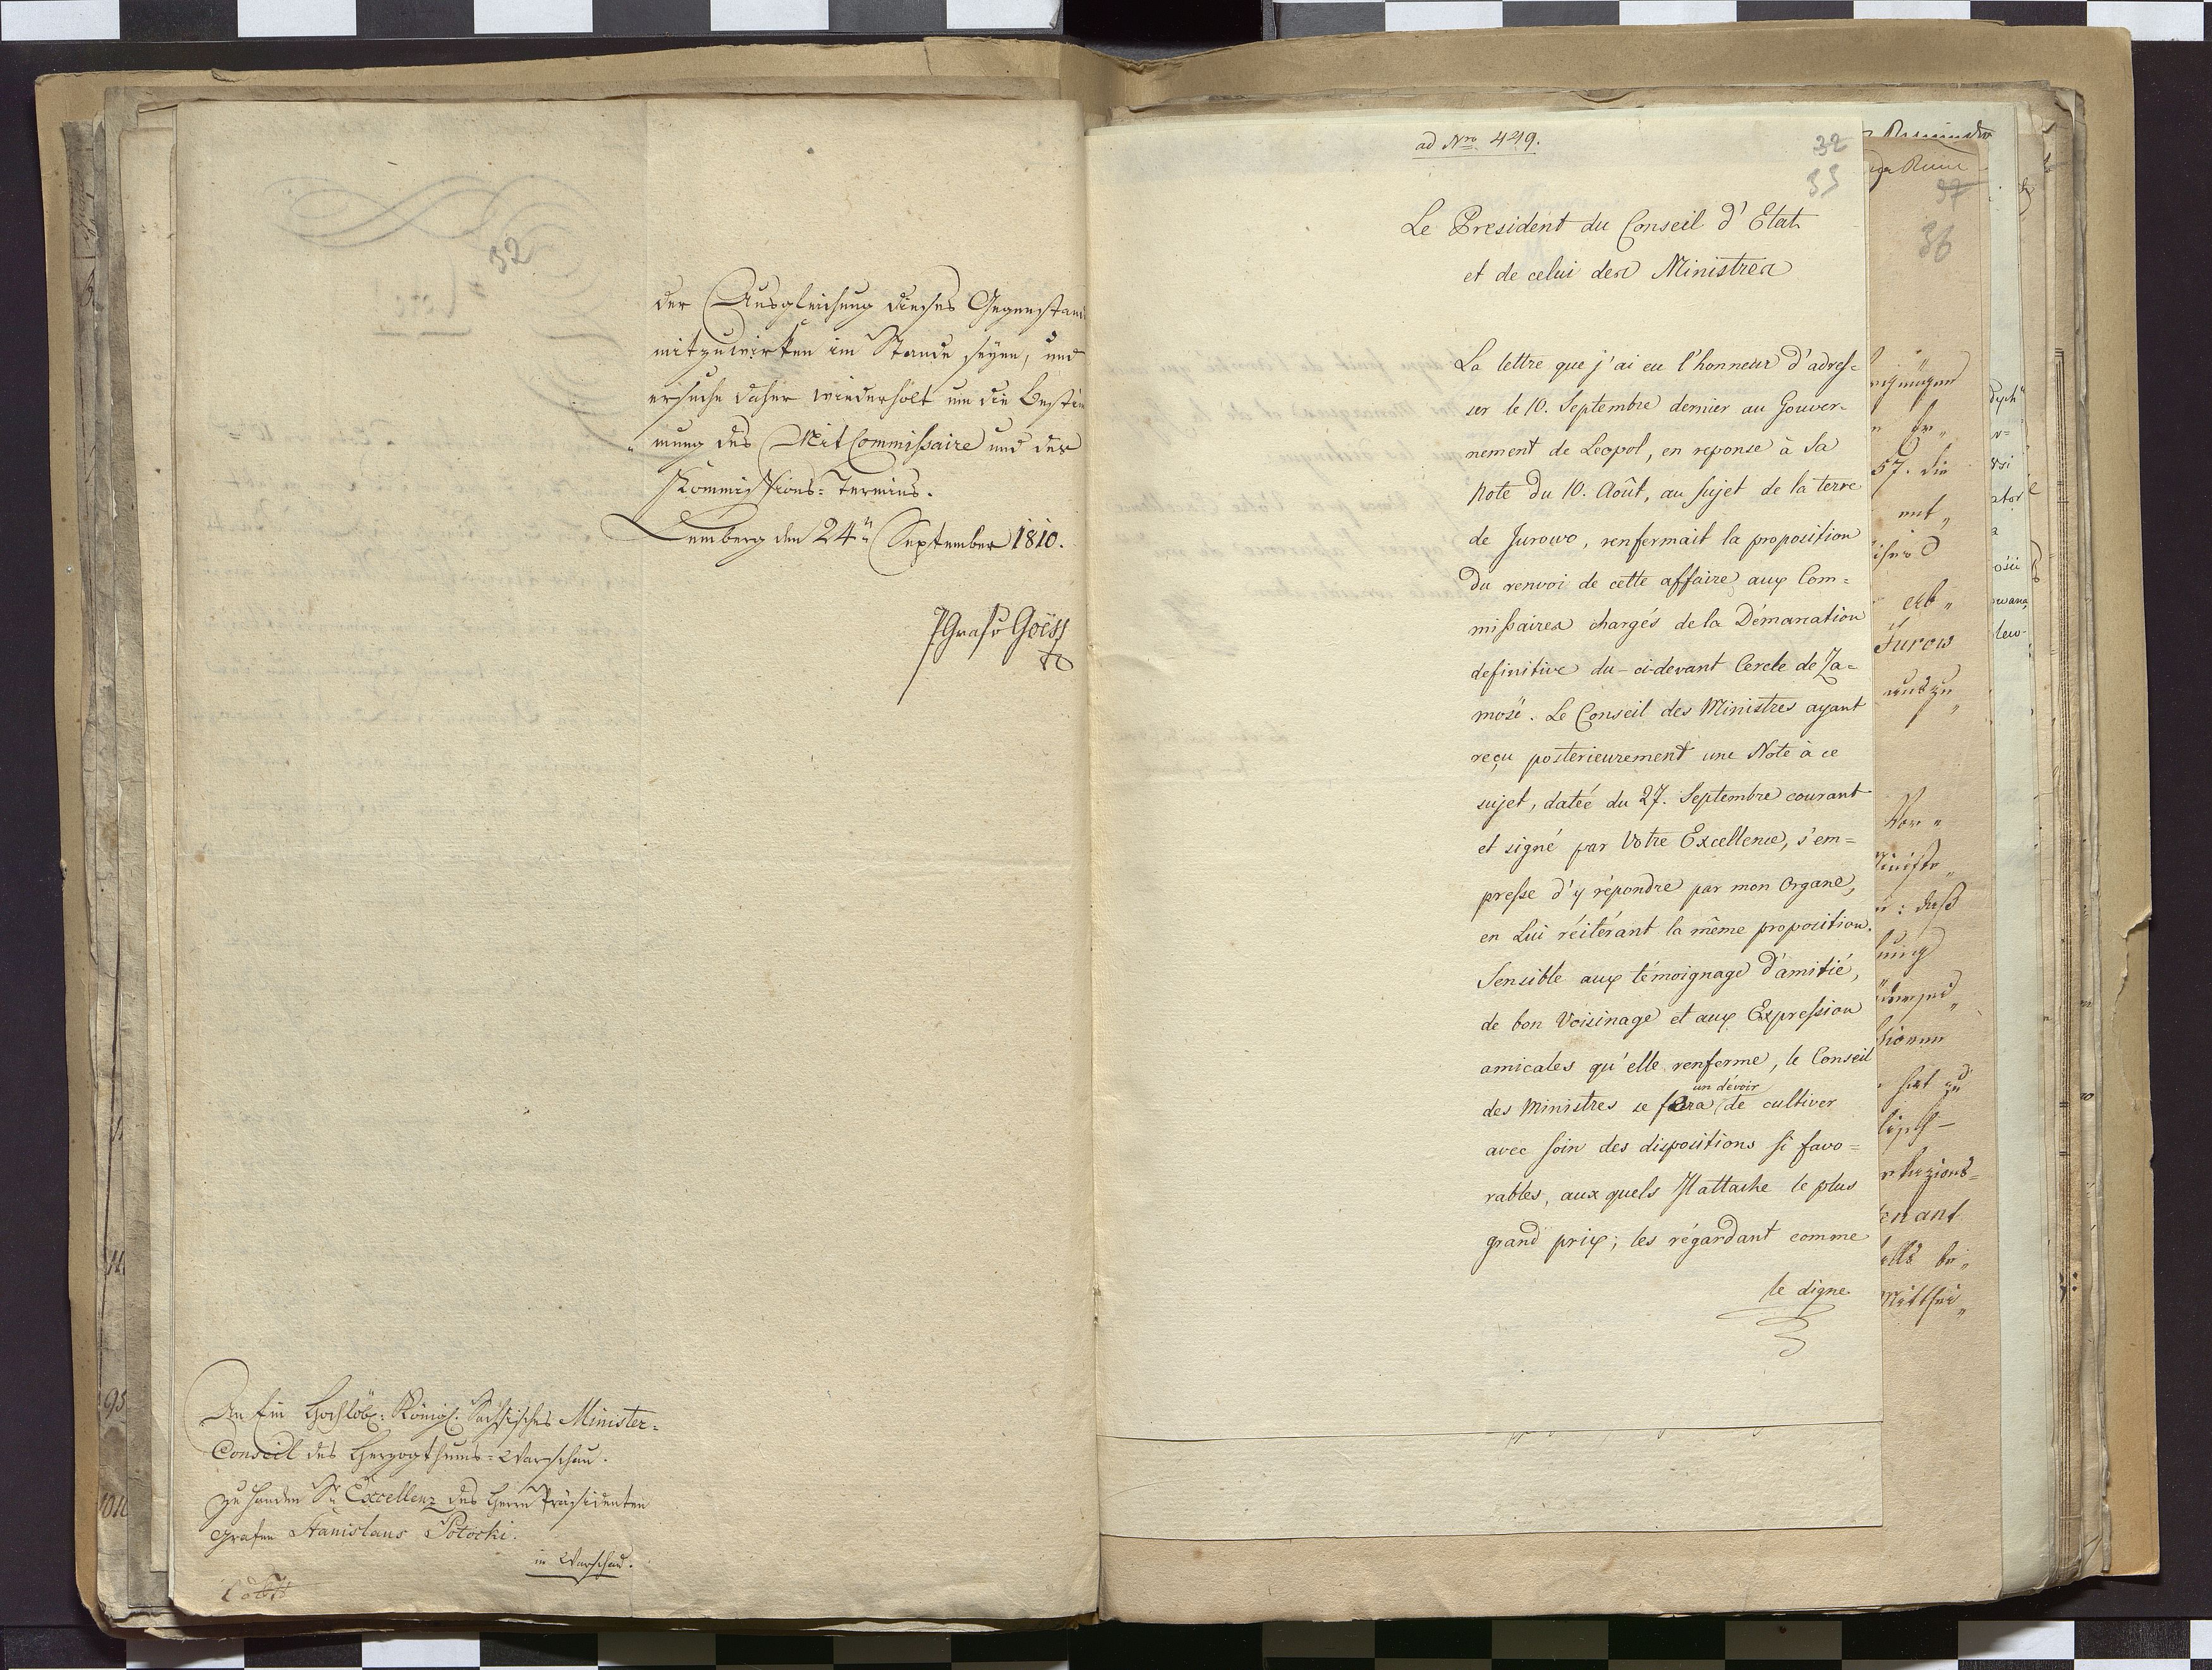 32
der Ausgleichung dieses Gegenstan
mitzuwirken im Stande seyen, und
ersuche daher wiederholt um die Bestim
mung des Mit Commissairs und des
Kommissions-Termins.
Lemberg den 24n September 1810.
Graf v Goëss
An Ein Hochlöb: Königl: Sächsisches Minister-
Conseil des Herzogthums-Warschau.
zu Handen Sr Excellenz des Herrn Präsidenten
Grafen Stanislaus Potocki.
in Warschau.
ad Nro 449.
32
33
Le President du Conseil d'Etat
et de celui des Ministres
La lettre que j'ai eu l'honneur d'adres=
ser le 10. Septembre dernier au Gouver-
nement de Leopol, en reponse à Sa
Note du 10. Août, au sujet de la terre
de Jurowo, renfermait la proposition
du renvoi de cette affaire aux Com=
missaires chargés de la Démarcation
definitive du-ci-devant Cercle de Za=
mosć. Le Conseil des Ministres ayant
reçu posterieurement une Note à ce
sujet, datée du 27. Septembre courant
et signé par Votre Excellence, s'em=
presse d'y répondre par mon Organe,
en Lui réiterant la même proposition.
Sensible aux témoignage d'amitié,
de bon Voisinage et aux Expression
amicales qu'elle renferme, le Conseil
un dévoir
des Ministres se fera de cultiver
avec soin des dispositions si favo=
rables, aux quels Il attache le plus
grand prix; les régardant comme
le digne
37
36
57. die
Jurow
auszu
daß
hat zu
enant